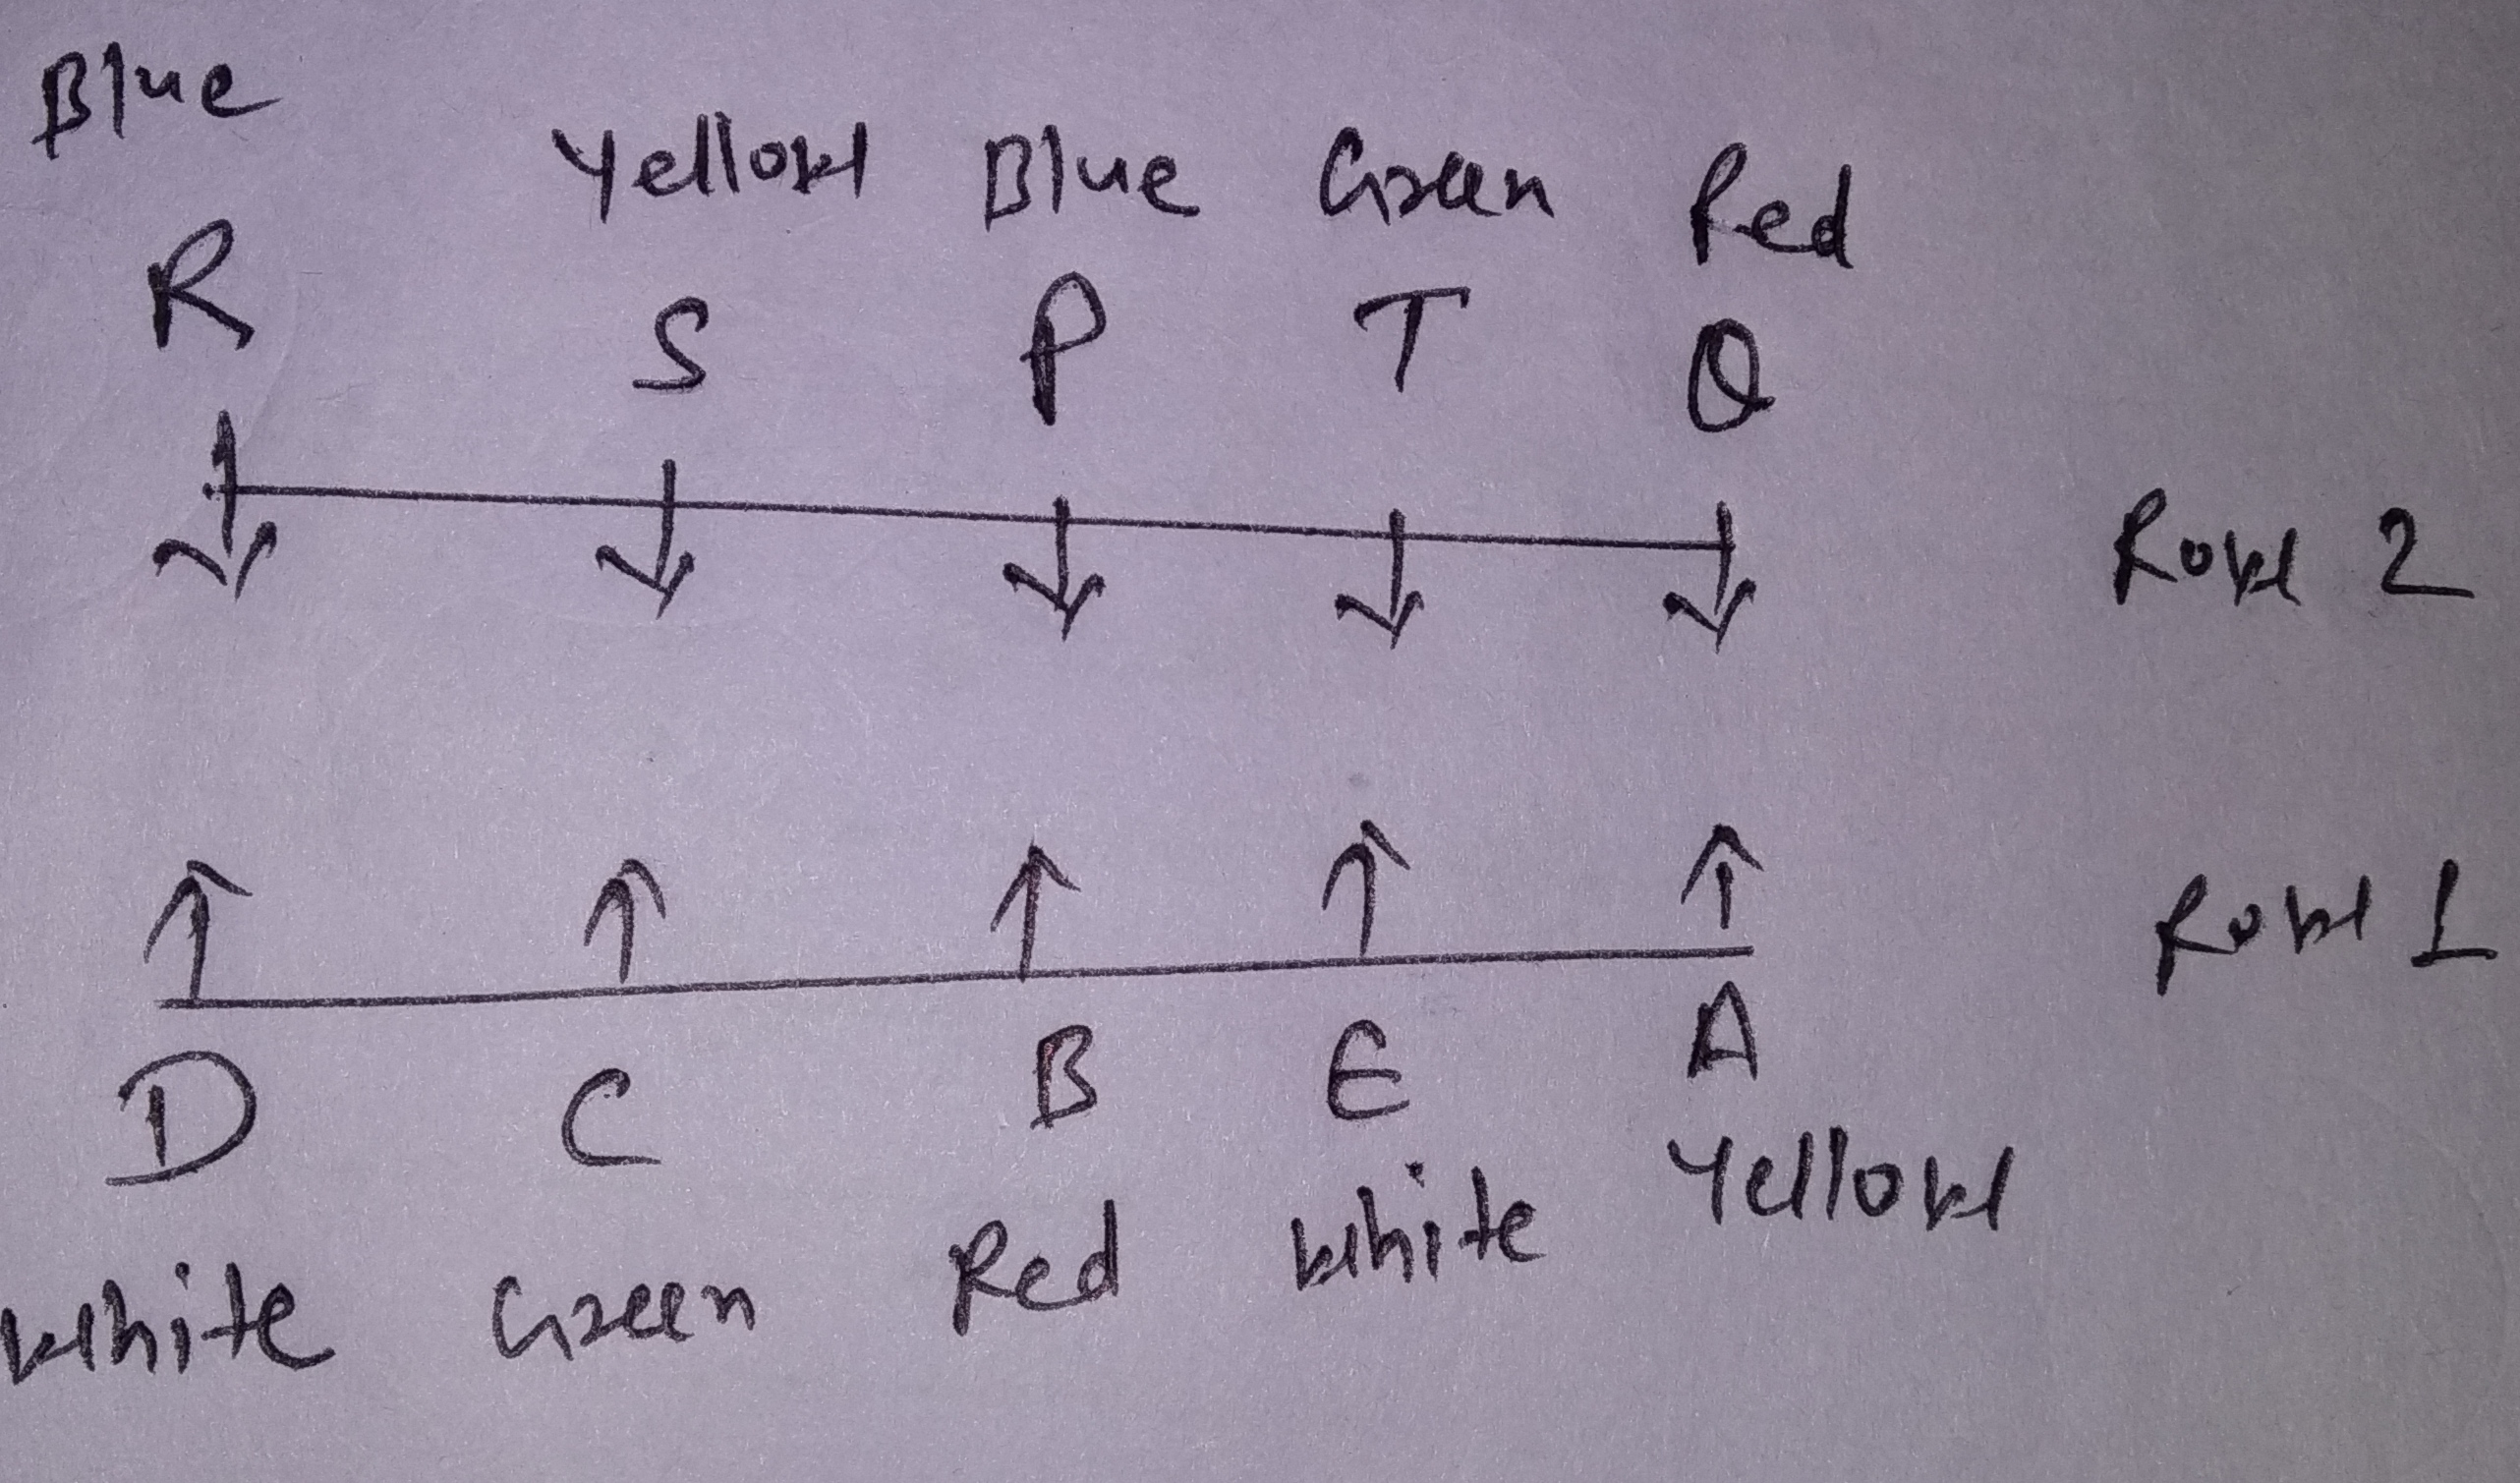 Blue Yellow Blue Green Red
R S P T Q
Row 2
Row 1
D C B E A
White Green Red White Yellow